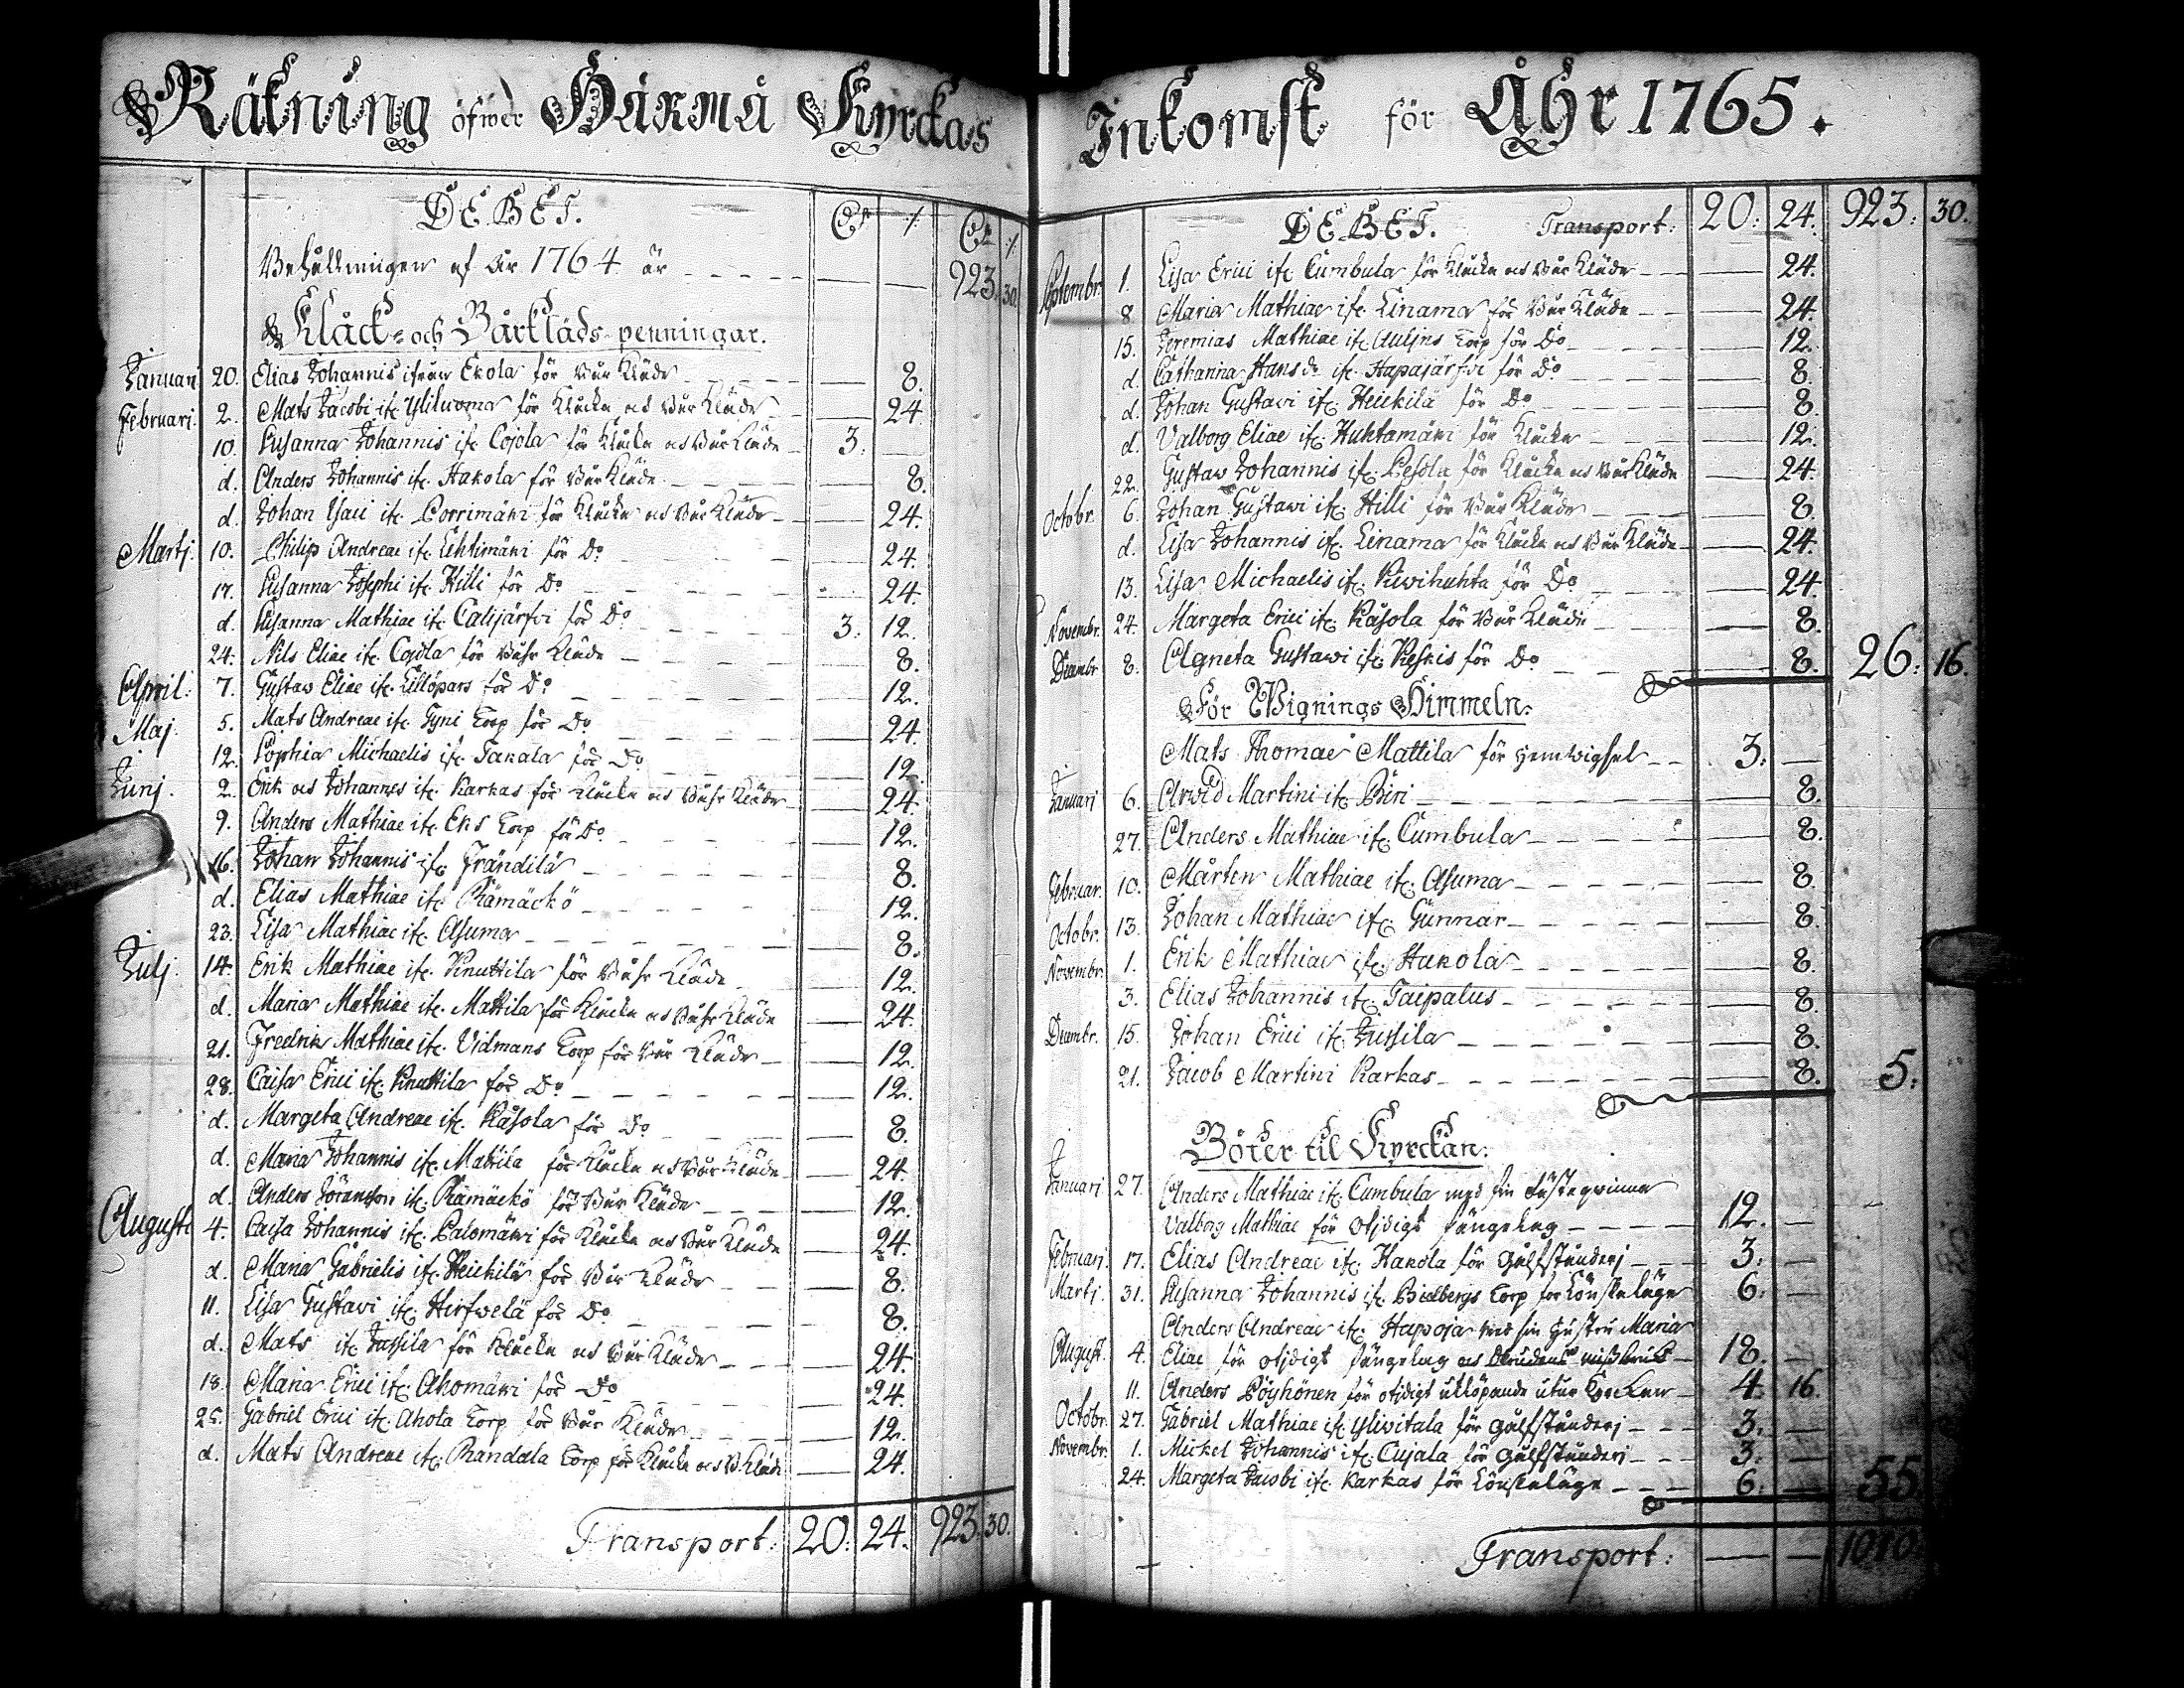 Räkning öfwer Härmä Kyrckas
DEBET. CR ./.
CR ./.
Behållningen af år 1764 är 923. 30.
Klåck- och Bårklåds-penningar.
Januari 20. Elias Johannis ifrån Ekola för Bår Kläde 8.
Februari 2. Mats Jacobi ifr. Yliluoma för Klåcka och Bår Kläde 24.
10. Susanna Johannis ifr. Cojola för Klåcka och Bår Kläde 3.
d. Anders Johannis ifr. Hakola för Bår Kläde 8.
d. Johan Isaci ifr. Porrimäki för Klåcka och Bår Kläde 24.
Martj. 10. Philip Andreae ifr. Lehtimäki för Do 24.
17. Susanna Josephi ifr. Hilli för Do 24.
d. Susanna Mathiae ifr. Calijärfvi för Do 3. 12.
24. Nils Eliae ifr. Cojola för Båhr Kläde 8.
April. 7. Gustaw Eliae ifr. Lillöpars för Do 12.
Maj. 5. Mats Andreae ifr. Gyni Torp för Do 24.
12. Sophia Michaelis ifr. Takala för Do 12.
Junj. 2. Erik och Johannes ifr. Karkas för Klåcka och Båhr Kläde 24.
9. Anders Mathiae ifr. Eks Torp för Do 12.
16. Johan Johannis ifr. Frändilä 8.
d. Elias Mathiae ifr. Rämäckö 12.
23. Lisa Mathiae ifr. Asuma 8.
Julj. 14. Erik Mathiae ifr. Knuttila för Båhr Kläde 12.
d. Maria Mathiae ifr. Mattila för Klåcka och Båhr Kläde 24.
21. Fredrik Mathiae ifr. Vidmans Torp för Bår Kläde 12.
28. Caisa Erici ifr. Knuttila för Do 12.
d. Margeta Andreae ifr. Kåsola för Do 8.
d. Maria Johannis ifr. Mattila för Klåcka och Bår Kläde 24.
d. Anders Göransson ifr. Rämäckö för Bår Kläde 12.
Augusti 4. Caisa Johannis ifr. Palomäki för Klåcka och Bår Kläde 24.
d. Maria Gabrielis ifr. Heickilä för Bår Kläde 8.
11. Lisa Gustavi ifr. Hirfwelä för Do 8.
d. Mats ifr. Jussila för Klåcka och Bår Kläde 24.
18. Maria Erici ifr. Ahomäki för Do 24.
25. Gabriel Erici ifr. Ahola Torp för Bår Kläde 12.
d. Mats Andreae ifr. Randala Torp för Klåcka och B. Kläde 24.
Transport: 20: 24. 923. 30.
Inkomst för Åhr 1765.
DEBET. Transport: 20: 24. 923: 30.
Septembr. 1. Lisa Erici ifr. Cumbula för Klåcka och Bår Kläde 24.
8. Maria Mathiae ifr. Linama för Bår Kläde 24.
15. Jeremias Mathiae ifr. Torp för Do 12.
d. Catharina Hans dr ifr. Hapajärfvi för Do 8.
d. Johan Gustavi ifr. Heickilä för Do 8.
d. Valborg Eliae ifr. Huhtamäki för Klåcka 12.
22. Gustaw Johannis ifr. Pesola för Klåcka och Bår Kläde 24.
Octobr. 6. Johan Gustavi ifr. Hilli för Bår Kläde 8.
d. Lisa Johannis ifr. Linama för Klåcka och Bår Kläde 24.
13. Lisa Michaelis ifr. Kiwihuhta för Do 24.
Novembr. 24. Margeta Erici ifr. Kåsola för Bår Kläde 8.
Decembr. 8. Agneta Gustawi ifr. Keskis för Do 8. 26: 16.
För Wignings Himmeln.
Mats Thomae Mattila för hemwigsel 3:
Januari 6. Arwid Martini ifr. Biri 8.
27. Anders Mathiae ifr. Cumbula 8.
Februar. 10. Mårten Mathiae ifr. Asuma 8.
Octobr. 13. Johan Mathiae ifr. Gunnar 8.
Novembr. 1. Erik Mathiae ifr. Hakola 8.
3. Elias Johannis ifr. Taipalus 8.
Decembr. 15. Johan Erici ifr. Jussila 8.
21. Jacob Martini Karkas 8. 5:
Böter til Kyrckan.
Januari 27. Anders Mathiae ifr. Cumbula med sin fästeqwinna
Valborg Mathiae för otjdigt sängelag 12.
Februari. 17. Elias Andreae ifr. Hakola för gålfståndery 3:
Martj. 31. Susanna Johannis ifr. Torp för Lönskeläge 6:
Anders Andreae ifr. Hapoja med sin hustru Maria
August. 4. Eliae för otjdigt sängelag och missbruk 18.
11. Anders Pöyhönen för otjdigt utlöpande utur Kyrckan 4. 16.
Octobr. 27. Gabriel Mathiae ifr. Yliwitala för gålfståndery 3:
Novembr. 1. Mickel Johannis ifr. Cujala för gålfståndery 3:
24. Margeta Jacobi ifr. Karkas för Lönskeläge 6: 55.
Transport: 1010.